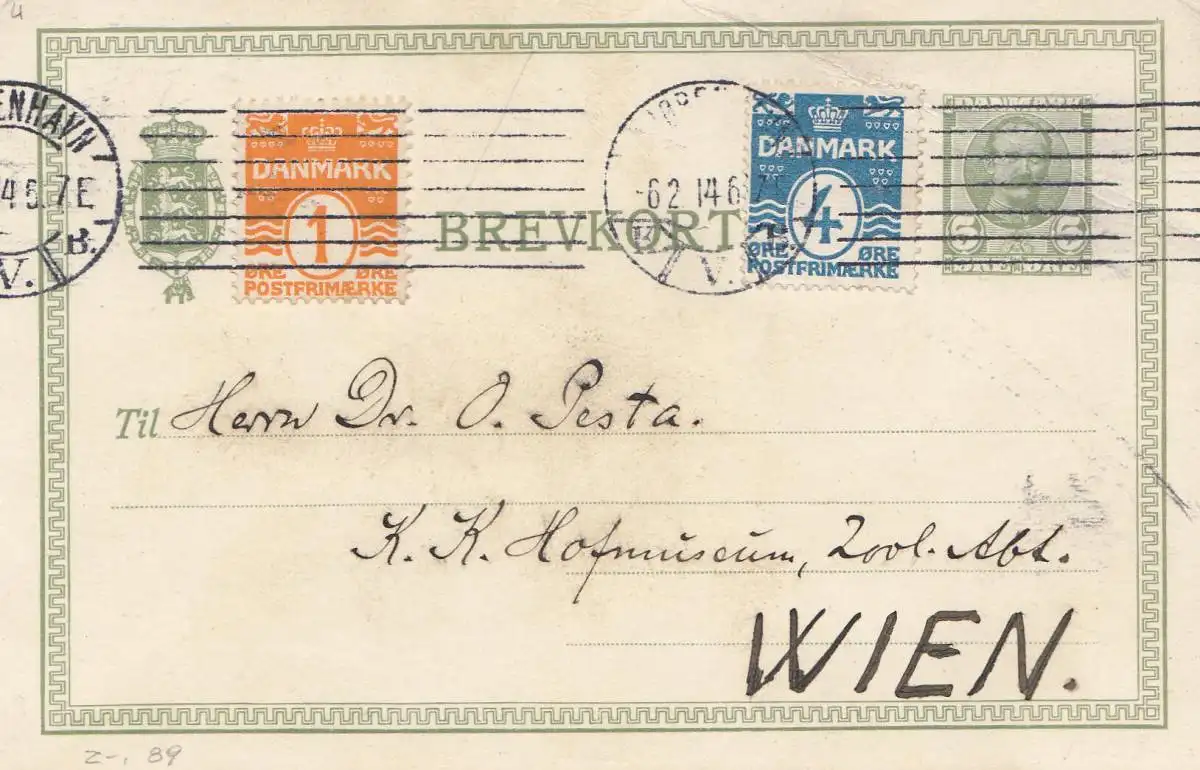 ENHAVN
14 6 7 E
B.
V.
DANMARK
1
ØRE ØRE
POSTFRIMÆRKE
BREVKORT
-6 2 14 6
V.
DANMARK
4
ØRE
POSTFRIMÆRKE
5 5
Til Herrn Dr. O. Pesta.
K. K. Hofmuseum, Zool. Abt.
WIEN.
z-, 89